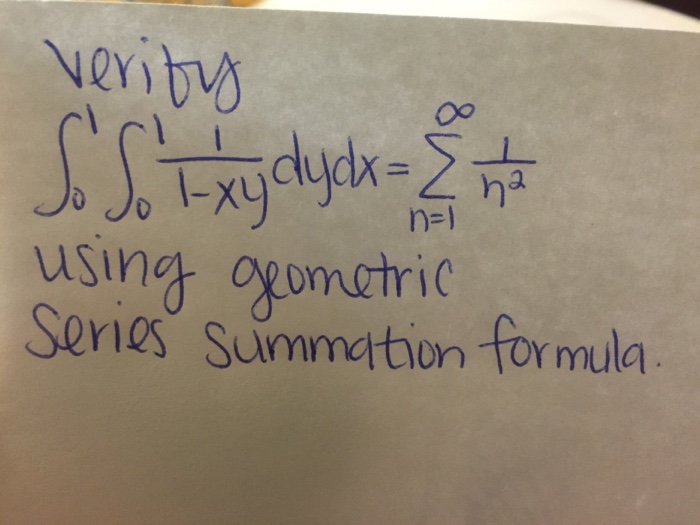 verify
∫₀¹ ∫₀¹ 1/(1-xy) dydx = ∞ Σ n=1 1/n²
using geometric
series summation formula.